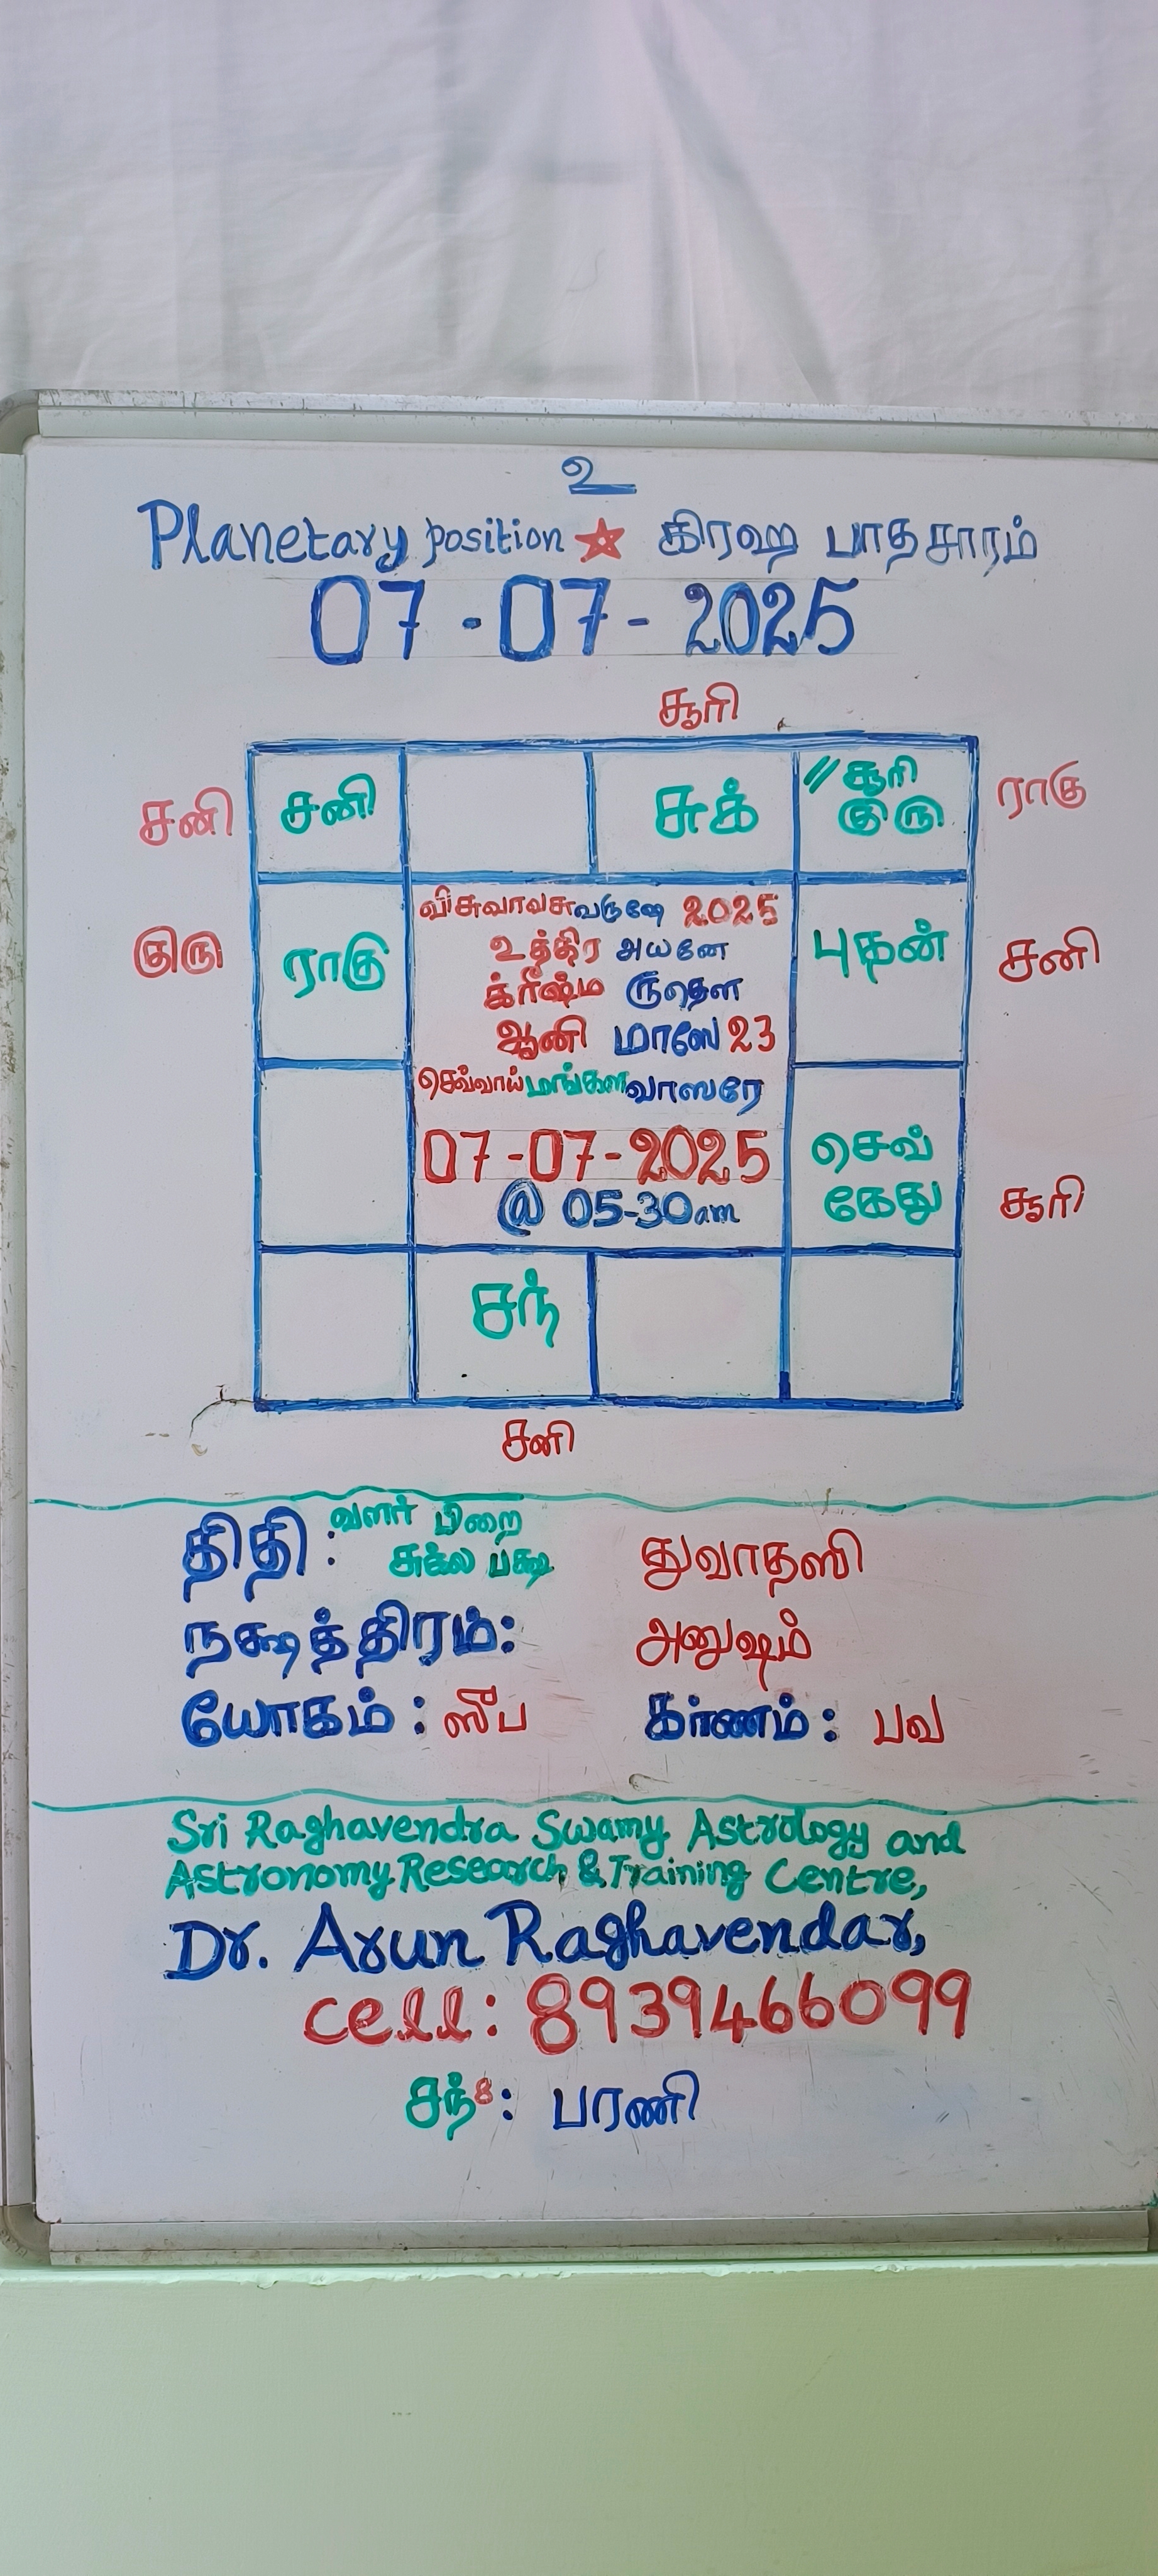 உ
Planetary position ☆ கிரஹ பாதசாரம்
07-07-2025
சூரி
சனி சனி சுக் // சூரி ராகு
குரு
குரு ராகு புதன் சனி
விசுவாவசுவருஷே 2025
உத்திர அயனே
க்ரீஷ்ம ருதௌ
ஆனி மாஸே 23
செவ்வாய் மங்களவாஸரே
07-07-2025
@ 05-30am
செவ்
கேது சூரி
சந்
சனி
திதி: வளர் பிறை
சுக்ல பக்ஷ துவாதஸி
நக்ஷத்திரம்: அனுஷம்
யோகம்: ஸுப கர்ணம்: பவ
Sri Raghavendra Swamy Astrology and
Astronomy Research & Training Centre,
Dr. Arun Raghavendar,
cell: 8939466099
சந்8: பரணி